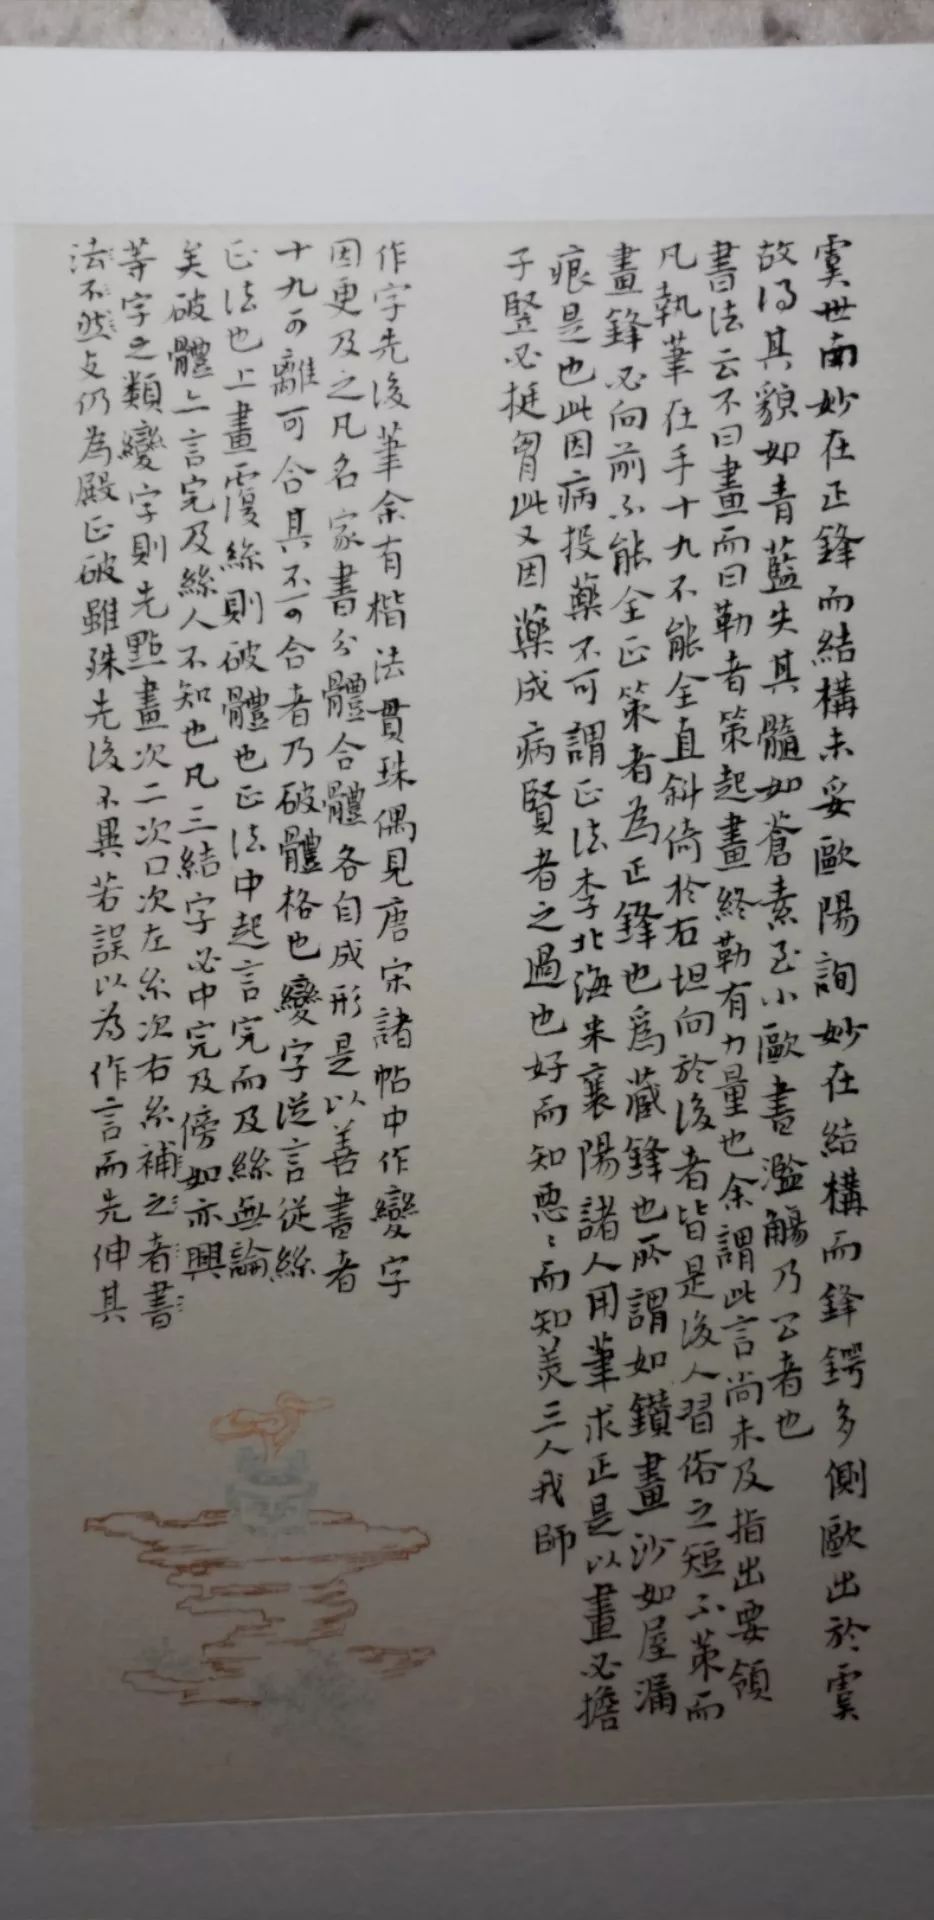 虞世南妙在正鋒而結構未妥歐陽詢妙在結構而鋒鍔多側歐出於虞
故得其貌如青藍失其髓如蒼素至小歐書濫觴乃公者也
書法云不曰畫而曰勒者策起畫終勒有力量也余謂此言尚未及指出要領
凡執筆在手十九不能全直斜倚於右坦向於後者皆是後人習俗之短不策而
畫鋒必向前不能全正策者為正鋒也為藏鋒也所謂如鑽畫沙如屋漏
痕是也此因病投藥不可謂正法李北海米襄陽諸人用筆求正是以畫必擔
子豎必挺胷此又因藥成病賢者之過也好而知惡惡而知美三人我師
作字先後筆余有楷法貫珠偶見唐宋諸帖中作變字
因更及之凡名家書分體合體各自成形是以善書者
十九可離可合其不可合者乃破體格也變字從言從絲
正法也上畫覆絲則破體也正法中起言完而及絲無論
矣破體亦言完及絲人不知也凡三結字必中完及傍如亦興
等字之類變字則先點畫次二次口次左糸次右糸補之者書
法不然攴仍為殿正破雖殊先後不異若誤以為作言而先伸其